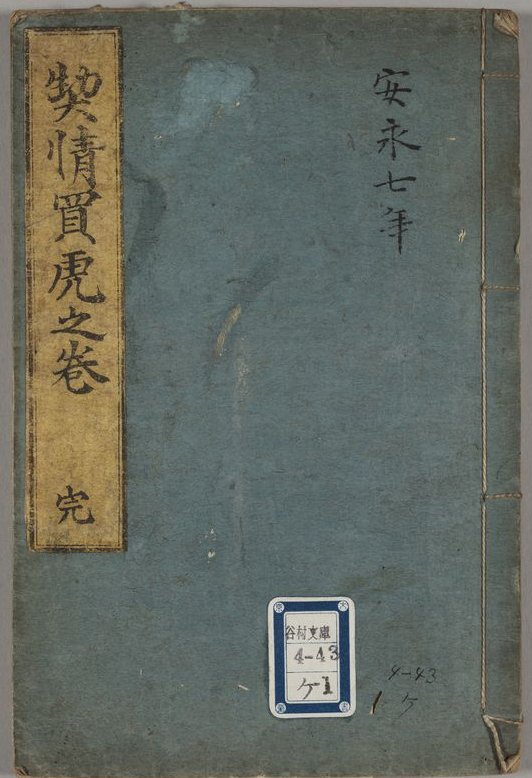 安永七年
契情買虎之巻
完
谷村文庫
4-43
ケ1
4-43
1 ケ